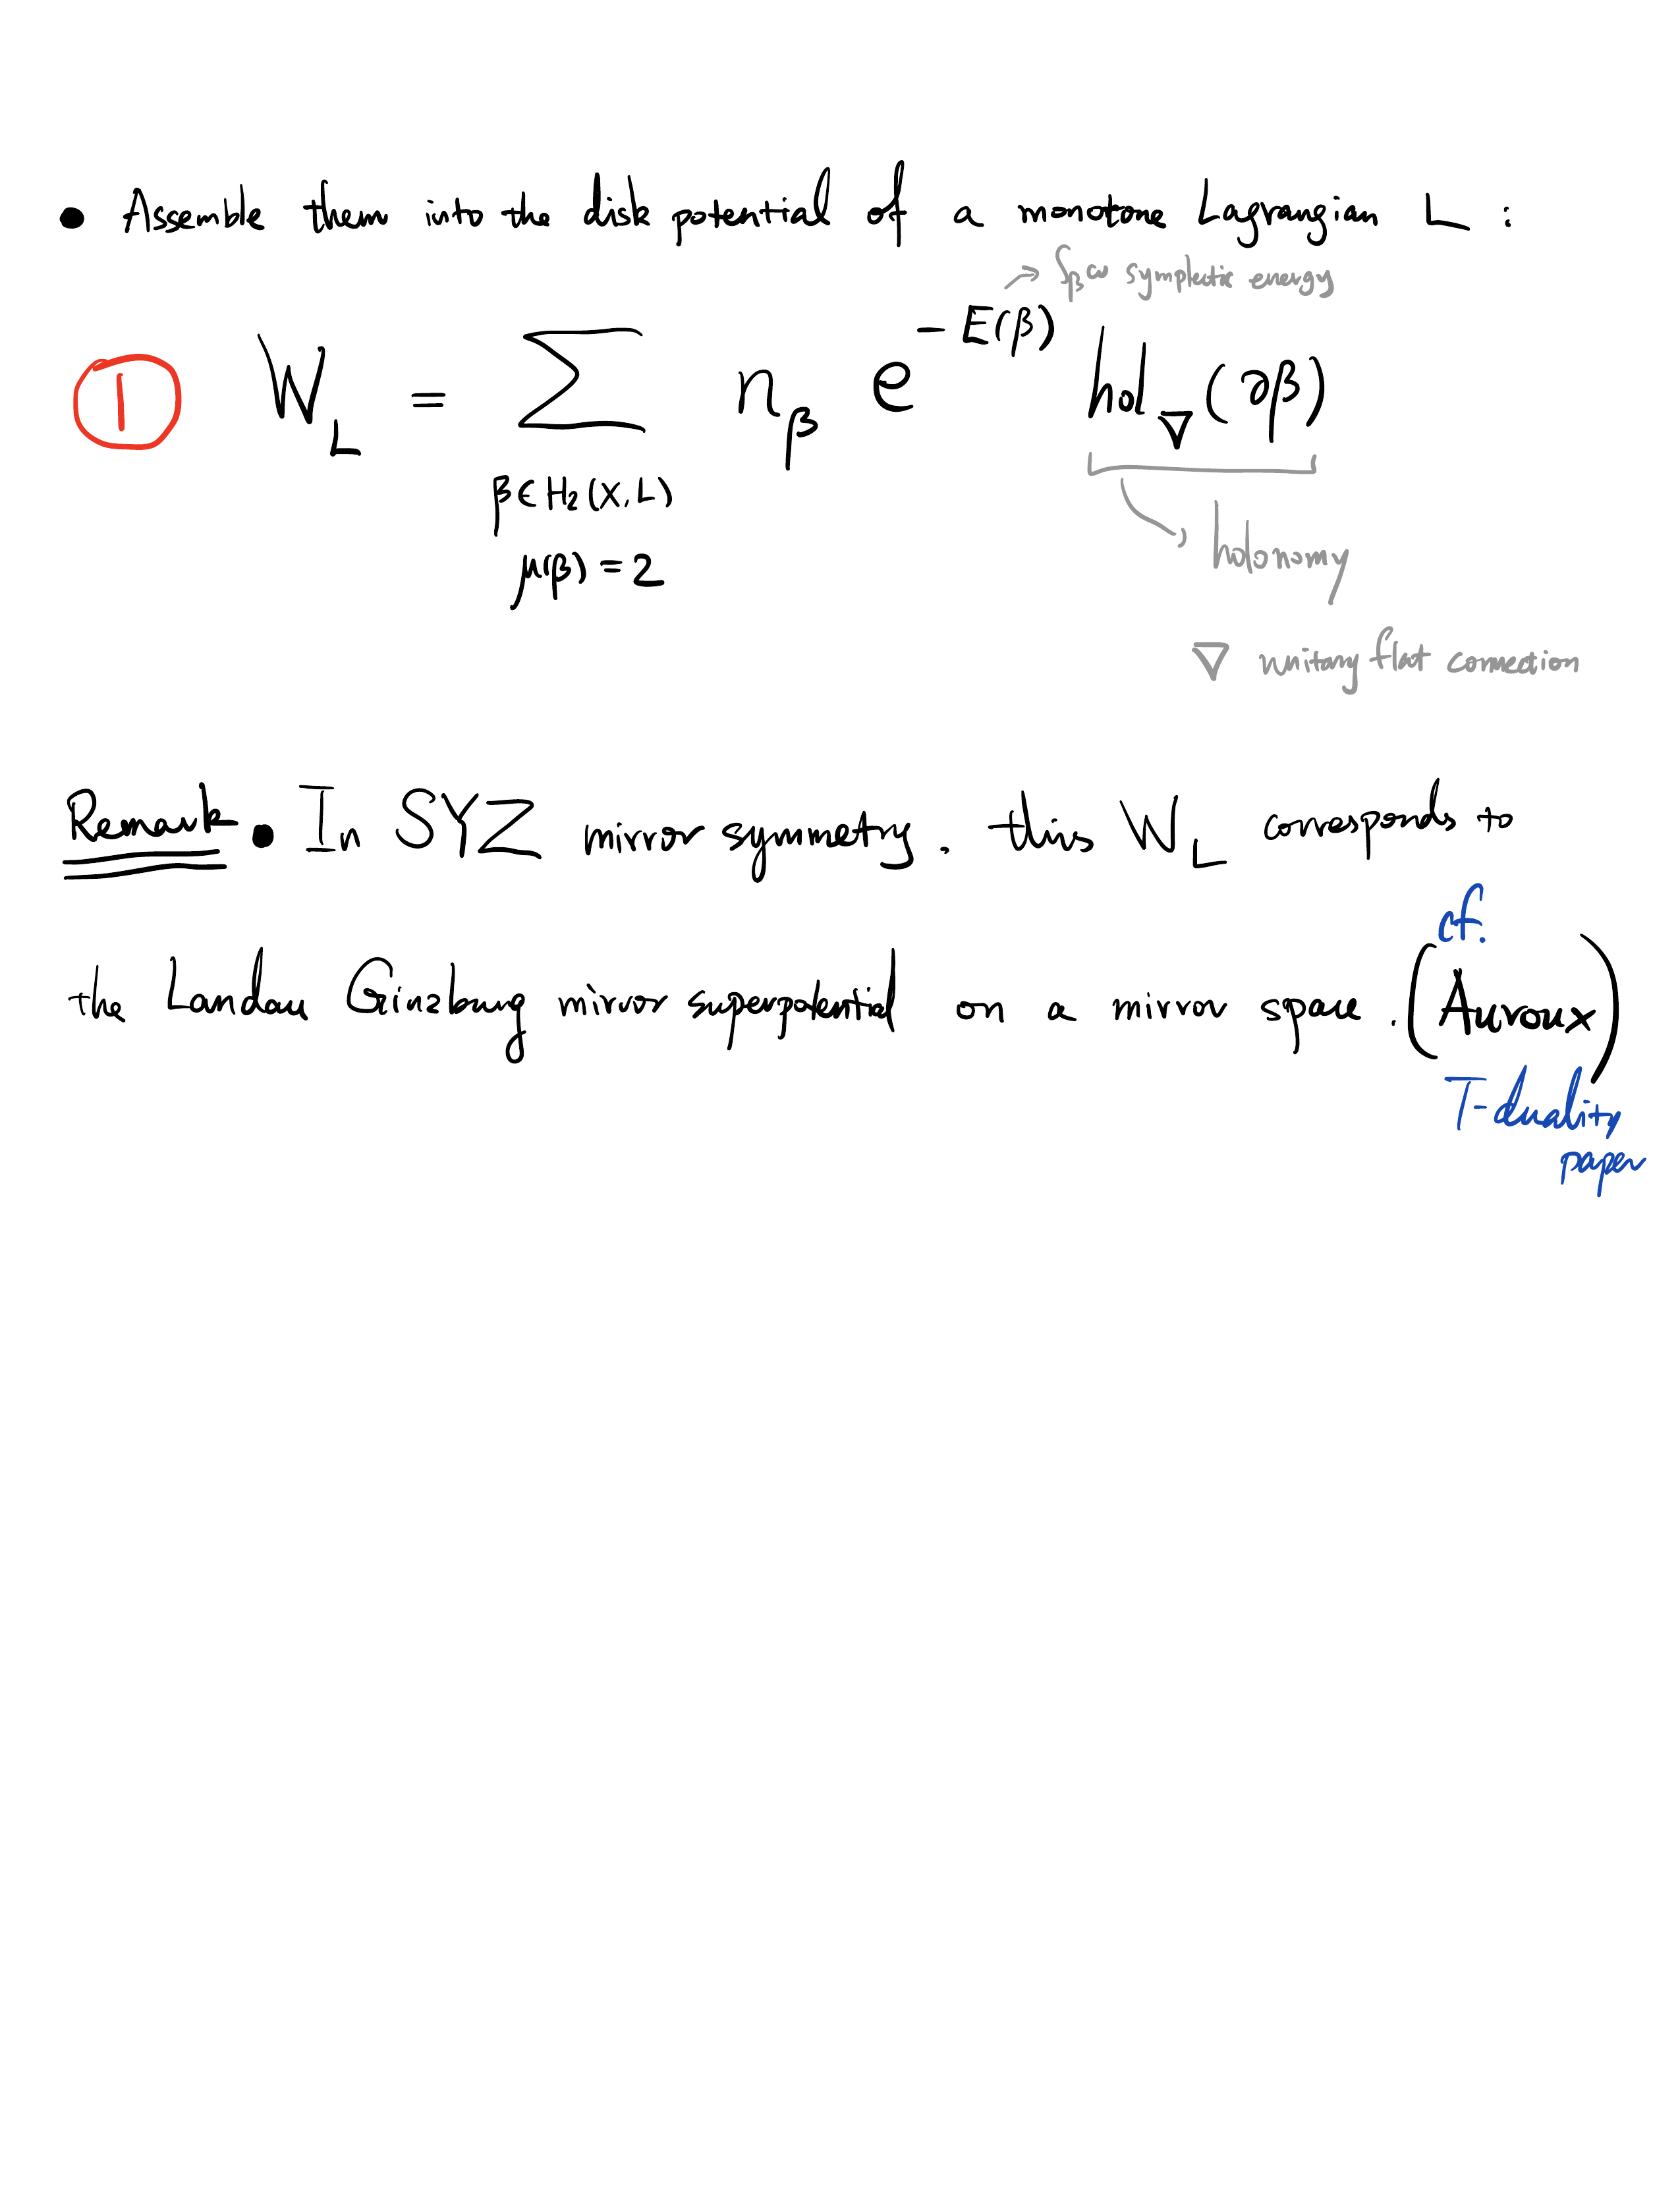 • Assemble them into the disk potential of a monotone Lagrangian L :
→ ∫_β ω symplectic energy
① W_L = ∑ n_β e^{-E(β)} hol_∇(∂β)
β∈H₂(X,L)
μ(β)=2
holonomy
∇ unitary flat connection
Remark • In SYZ mirror symmetry, this W_L corresponds to
cf.
the Landau Ginzburg mirror superpotential on a mirror space. (Auroux)
T-duality
paper